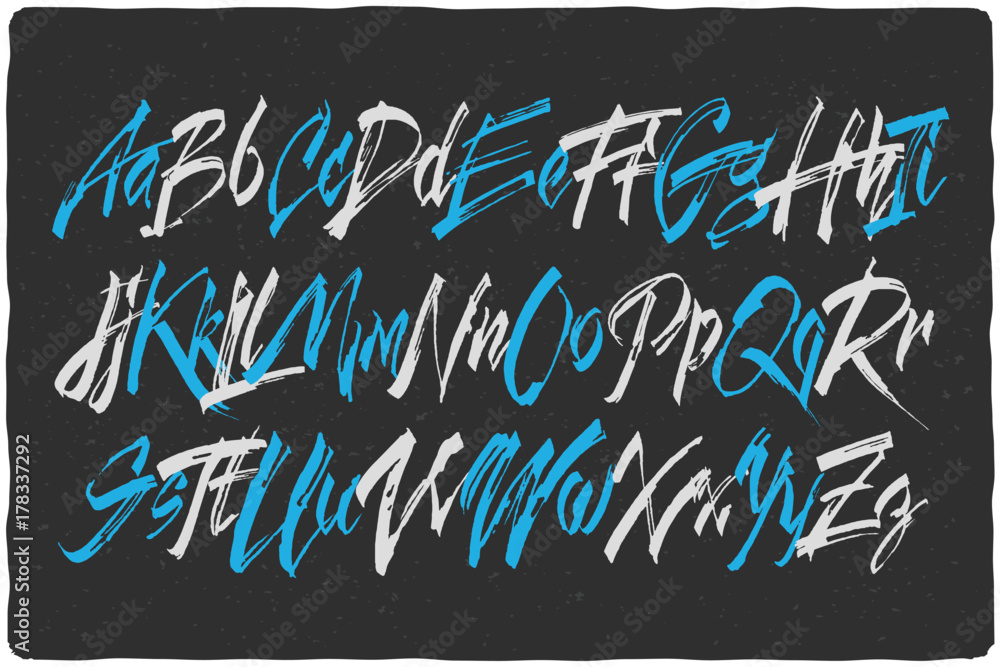 Aa Bb Cc Dd Ee Ff Gg Hh Ii
Jj Kk Ll Mm Nn Oo Pp Qq Rr
Ss Tt Uu Vv Ww Xx Yy Zz
Adobe Stock | #178337292